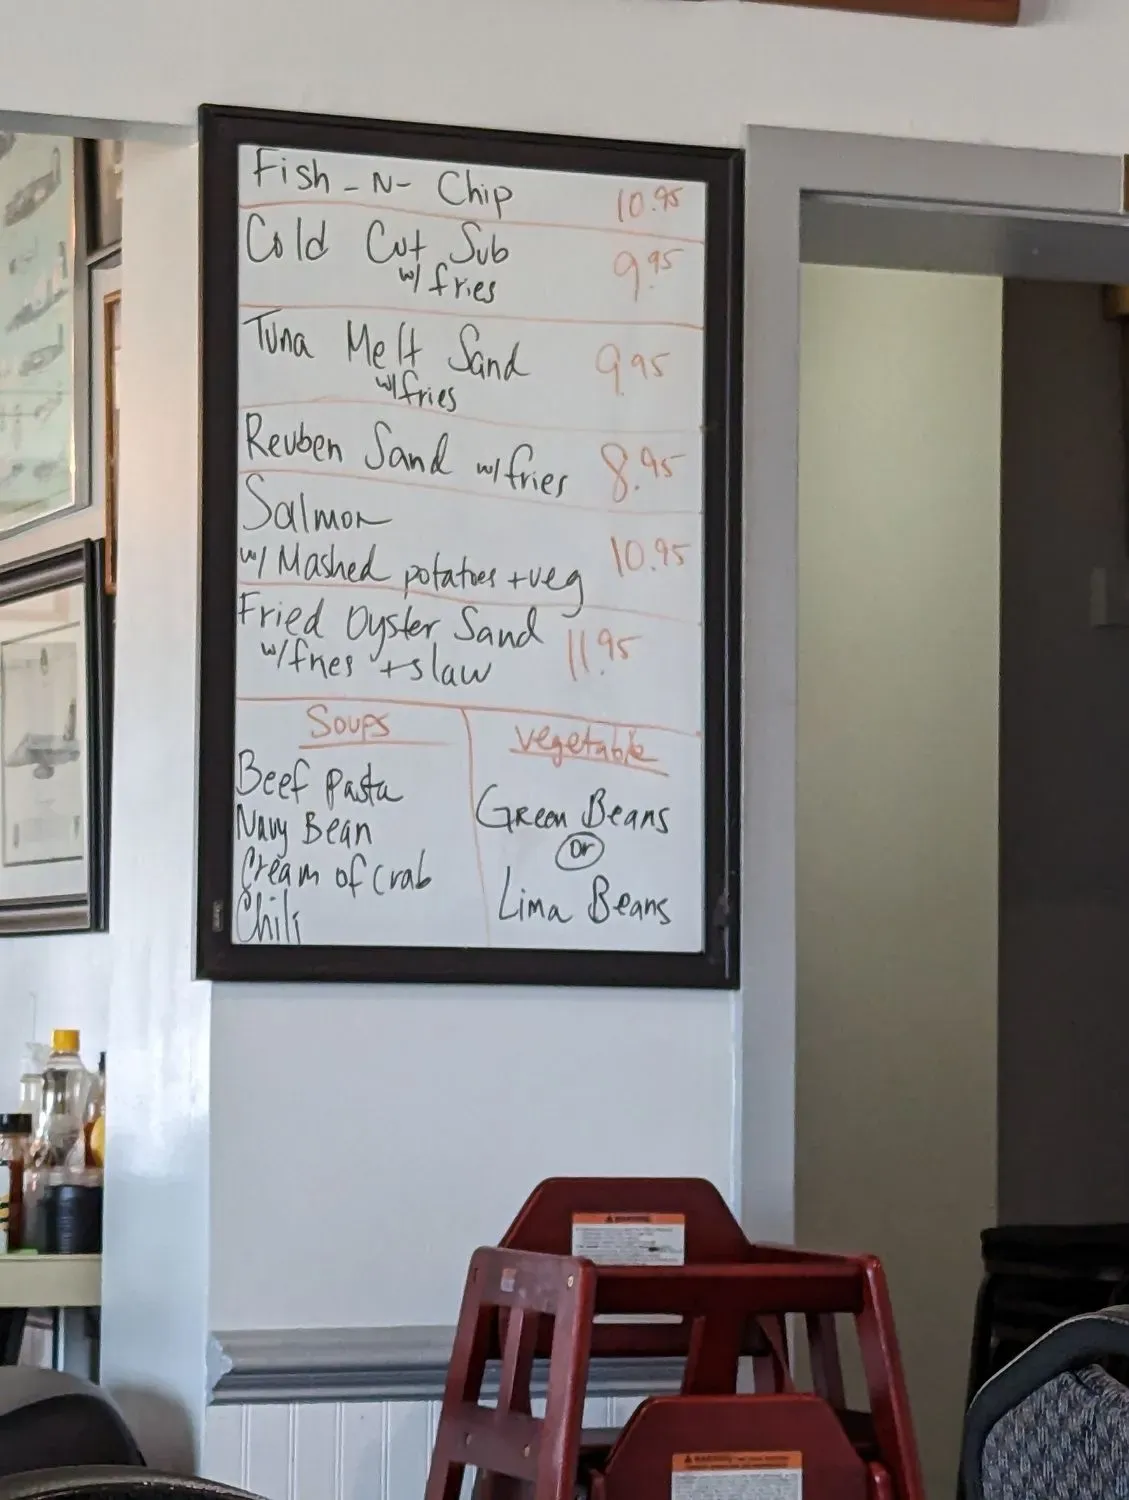 Fish - N - Chip 10.95
Cold Cut Sub 9.95
w/ fries
Tuna Melt Sand 9.95
w/ fries
Reuben Sand w/ fries 8.95
Salmon
w/ Mashed potatoes + veg 10.95
Fried Oyster Sand 11.95
w/ fries + slaw
Soups
Beef Pasta
Navy Bean
Cream of Crab
Chili
Vegetable
Green Beans
Or
Lima Beans
WARNING
WARNING